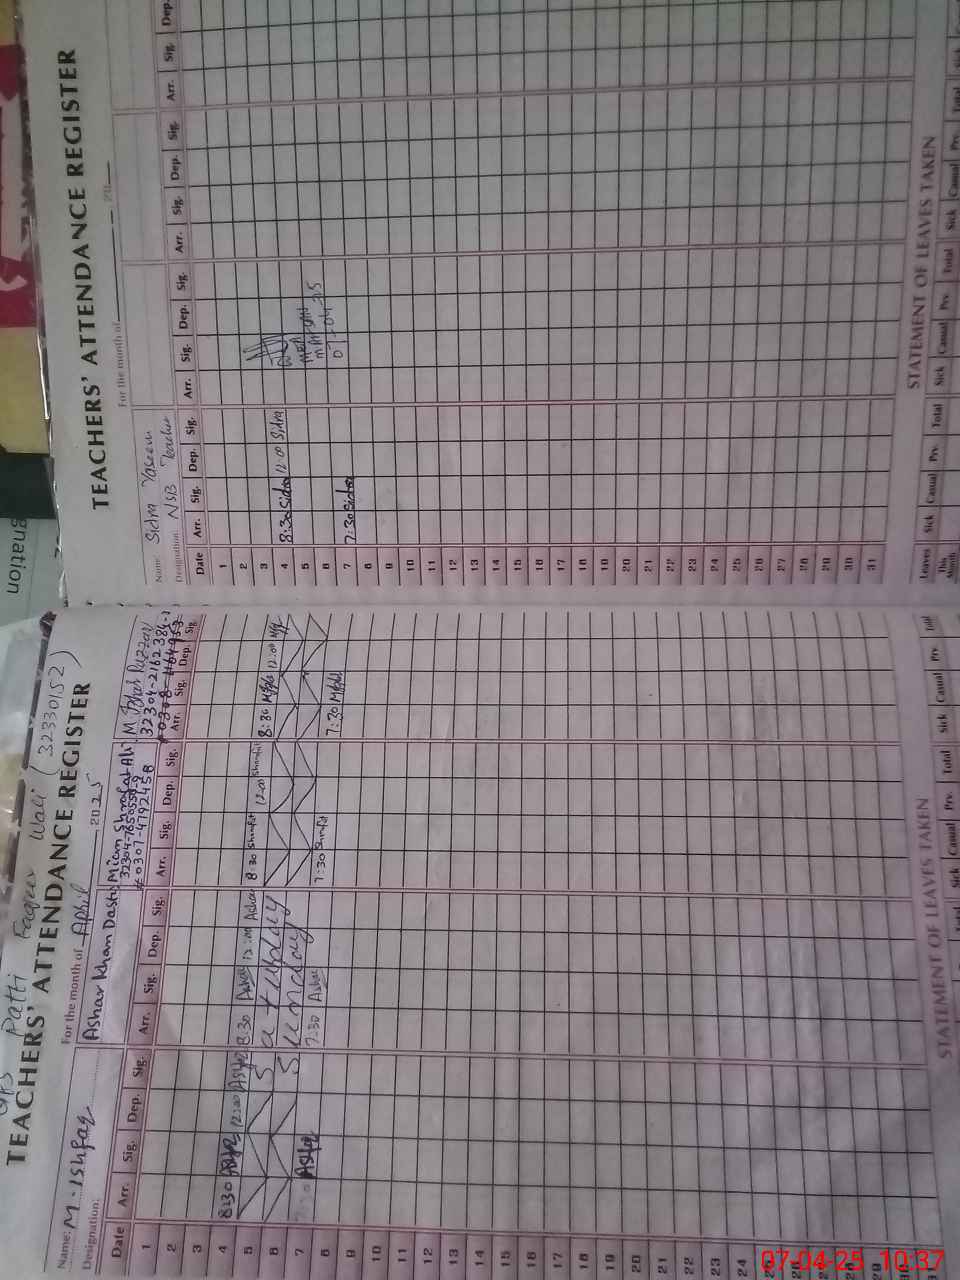 GPS Patti Faqeer Wali (32330152)
TEACHERS' ATTENDANCE REGISTER
For the month of April 2025
Name: M. Ishfaq
Designation:
Ashar Khan Dasti
Mian Shrafat Ali
#0307-4792458
32304-2162384-
Date Arr. Sig. Dep. Sig. Arr. Sig. Dep. Sig. Arr. Sig. Dep. Sig. Arr. Sig. Dep. Sig.
1
2
3
4 8:30 12:00 8:30 Ashar 12:00 Ashar 8:30 Shrafat 12:00 Shrafat 8:30 12:00
5 Saturday
6 Sunday
7 7:30 Ashar 7:30 Shrafat 7:30
8
9
10
11
12
13
14
15
16
17
18
19
20
21
22
23
24
25
26
28
29
30
STATEMENT OF LEAVES TAKEN
Sick Casual Prv. Total Sick Casual Prv. Total
TEACHERS' ATTENDANCE REGISTER
For the month of 20
Name: Sidra Yaseen
Designation: NSB Teacher
Date Arr. Sig. Dep. Sig. Arr. Sig. Dep. Sig. Arr. Sig. Dep. Sig. Arr. Sig. Dep.
1
2
3
4 8:30 Sidra 12:00 Sidra
5 MEA
6
7 7:30 Sidra
07-04-25
8
9
10
11
12
13
14
15
16
17
18
19
20
21
22
23
24
25
26
27
28
29
30
31
STATEMENT OF LEAVES TAKEN
Leaves Sick Casual Prv. Total Sick Casual Prv. Total Sick Casual Prv. Total
This Month
gnation
07-04-25 10:37